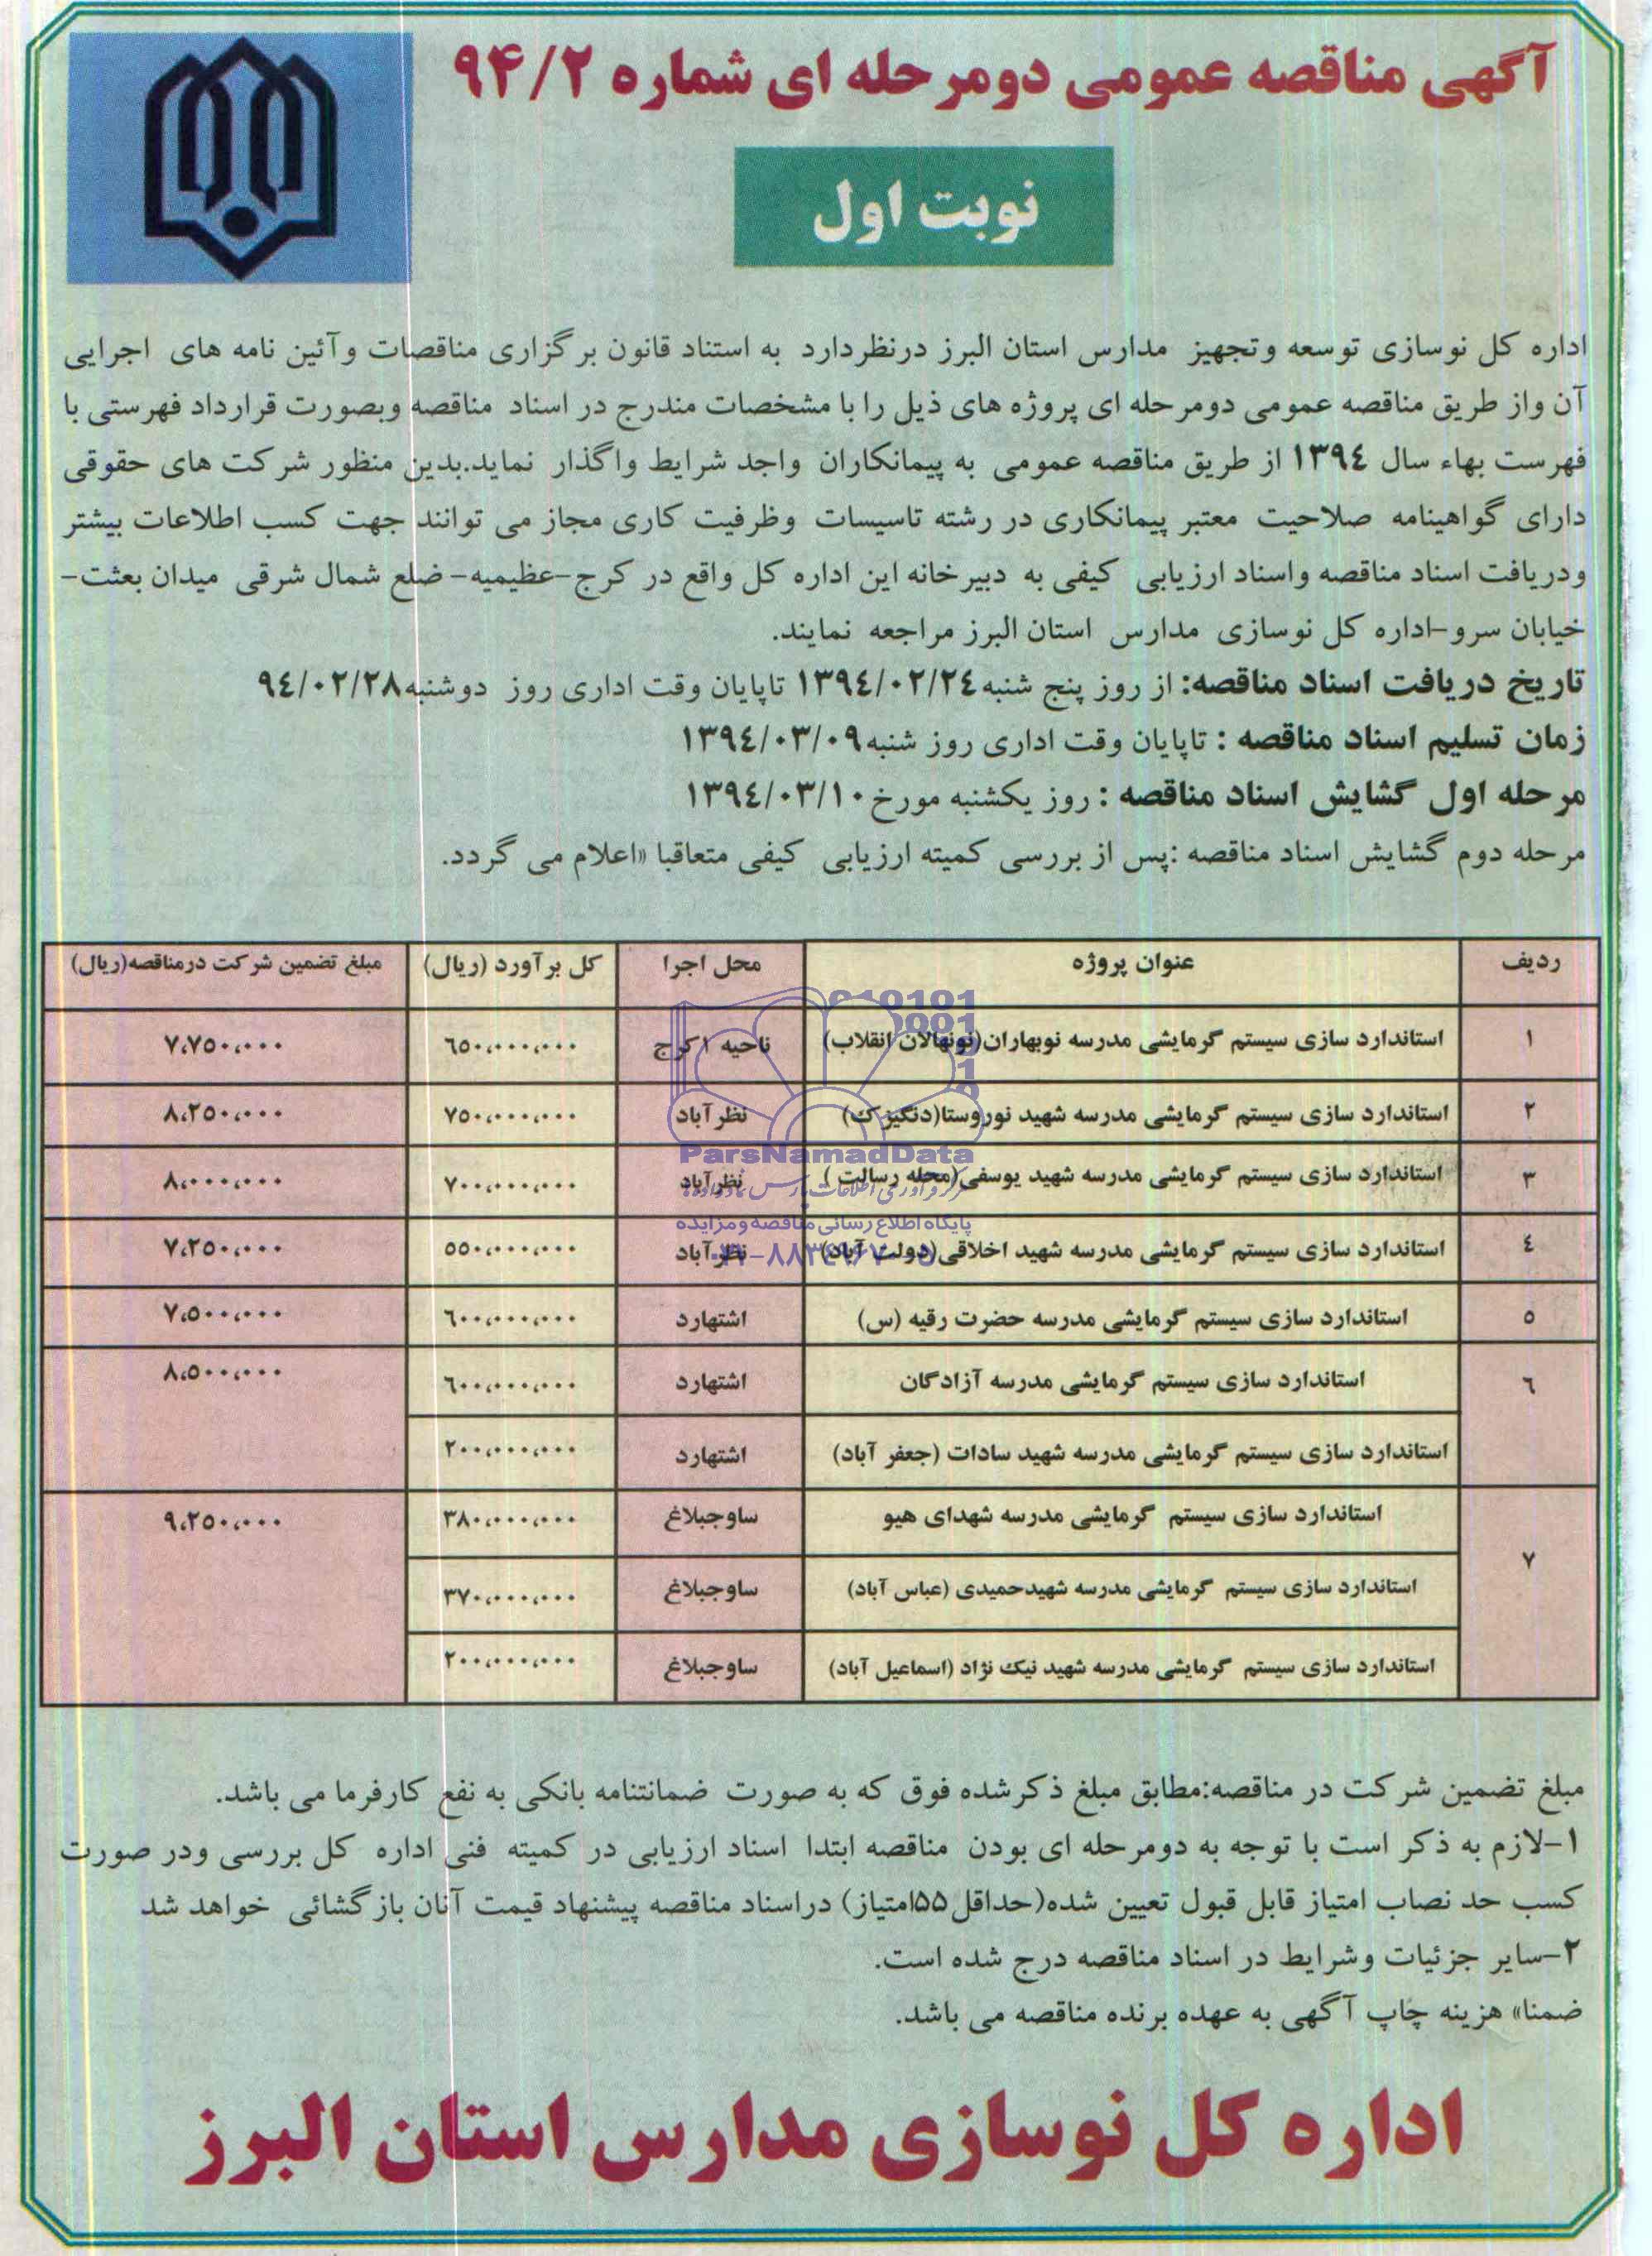 آگهی مناقصه عمومی دومرحله ای شماره ۹۴/۲
نوبت اول
اداره کل نوسازی توسعه وتجهیز مدارس استان البرز درنظردارد به استناد قانون برگزاری مناقصات وآئین نامه های اجرایی
آن واز طریق مناقصه عمومی دومرحله ای پروژه های ذیل را با مشخصات مندرج در اسناد مناقصه وبصورت قرارداد فهرستی با
فهرست بهاء سال ۱۳۹٤ از طریق مناقصه عمومی به پیمانکاران واجد شرایط واگذار نماید.بدین منظور شرکت های حقوقی
دارای گواهینامه صلاحیت معتبر پیمانکاری در رشته تاسیسات وظرفیت کاری مجاز می توانند جهت کسب اطلاعات بیشتر
ودریافت اسناد مناقصه واسناد ارزیابی کیفی به دبیرخانه این اداره کل واقع در کرج-عظیمیه-ضلع شمال شرقی میدان بعثت-
خیابان سرو-اداره کل نوسازی مدارس استان البرز مراجعه نمایند.
تاریخ دریافت اسناد مناقصه: از روز پنج شنبه ۱۳۹٤/۰۲/۲٤ تاپایان وقت اداری روز دوشنبه ۹٤/۰۲/۲۸
زمان تسلیم اسناد مناقصه : تاپایان وقت اداری روز شنبه ۱۳۹٤/۰۳/۰۹
مرحله اول گشایش اسناد مناقصه : روز یکشنبه مورخ ۱۳۹٤/۰۳/۱۰
مرحله دوم گشایش اسناد مناقصه :پس از بررسی کمیته ارزیابی کیفی متعاقبا «اعلام می گردد.
ردیف عنوان پروژه محل اجرا کل برآورد (ریال) مبلغ تضمین شرکت درمناقصه(ریال)
۱ استاندارد سازی سیستم گرمایشی مدرسه نوبهاران(نونهالان انقلاب) ناحیه ۱ کرج ٦۵۰،۰۰۰،۰۰۰ ۷،۷۵۰،۰۰۰
۲ استاندارد سازی سیستم گرمایشی مدرسه شهید نوروستا(دنگیزک) نظرآباد ۷۵۰،۰۰۰،۰۰۰ ۸،۲۵۰،۰۰۰
۳ استاندارد سازی سیستم گرمایشی مدرسه شهید یوسفی(محله رسالت ) نظرآباد ۷۰۰،۰۰۰،۰۰۰ ۸،۰۰۰،۰۰۰
٤ استاندارد سازی سیستم گرمایشی مدرسه شهید اخلاقی(دولت آباد) نظرآباد ۵۵۰،۰۰۰،۰۰۰ ۷،۲۵۰،۰۰۰
۵ استاندارد سازی سیستم گرمایشی مدرسه حضرت رقیه (س) اشتهارد ٦۰۰،۰۰۰،۰۰۰ ۷،۵۰۰،۰۰۰
٦ استاندارد سازی سیستم گرمایشی مدرسه آزادگان اشتهارد ٦۰۰،۰۰۰،۰۰۰ ۸،۵۰۰،۰۰۰
استاندارد سازی سیستم گرمایشی مدرسه شهید سادات (جعفر آباد) اشتهارد ۲۰۰،۰۰۰،۰۰۰
۷ استاندارد سازی سیستم گرمایشی مدرسه شهدای هیو ساوجبلاغ ۳۸۰،۰۰۰،۰۰۰ ۹،۲۵۰،۰۰۰
استاندارد سازی سیستم گرمایشی مدرسه شهیدحمیدی (عباس آباد) ساوجبلاغ ۳۷۰،۰۰۰،۰۰۰
استاندارد سازی سیستم گرمایشی مدرسه شهید نیک نژاد (اسماعیل آباد) ساوجبلاغ ۲۰۰،۰۰۰،۰۰۰
ParsNamadData
پایگاه اطلاع رسانی مناقصه ومزایده
مبلغ تضمین شرکت در مناقصه:مطابق مبلغ ذکرشده فوق که به صورت ضمانتنامه بانکی به نفع کارفرما می باشد.
۱-لازم به ذکر است با توجه به دومرحله ای بودن مناقصه ابتدا اسناد ارزیابی در کمیته فنی اداره کل بررسی ودر صورت
کسب حد نصاب امتیاز قابل قبول تعیین شده(حداقل۵۵امتیاز) دراسناد مناقصه پیشنهاد قیمت آنان بازگشائی خواهد شد
۲-سایر جزئیات وشرایط در اسناد مناقصه درج شده است.
ضمنا» هزینه چاپ آگهی به عهده برنده مناقصه می باشد.
اداره کل نوسازی مدارس استان البرز